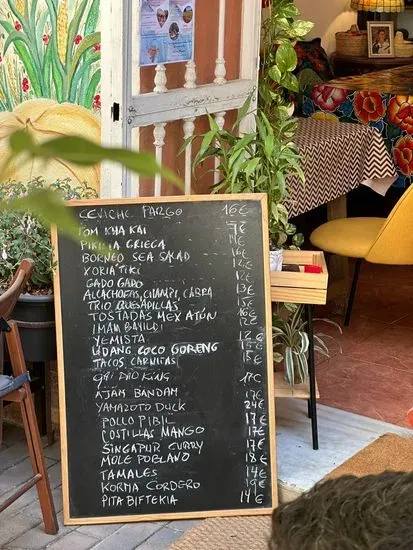 CEVICHE PARGO 16€
TOM KHA KAI 9€
PIKILIA GRIEGA
BORNEO SEA SALAD 16€
XORIATIKI 12€
GADO GADO 12€
ALCACHOFAS, CHAMPI, CABRA 13€
TRIO QUESADILLAS 15€
TOSTADAS MEX ATÚN 16€
IMAM BAYILDI 12€
YEMISTA 12€
UDANG COCO GORENG 15€
TACOS CARNITAS 18€
KING 17€
AJAM BANDAM 17€
YAMAZOTO DUCK 24€
POLLO PIBIL 17€
COSTILLAS MANGO 17€
SINGAPUR CURRY 17€
MOLE POBLANO 18€
TAMALES 14€
KORMA CORDERO 19€
PITA BIFTEKIA 14€